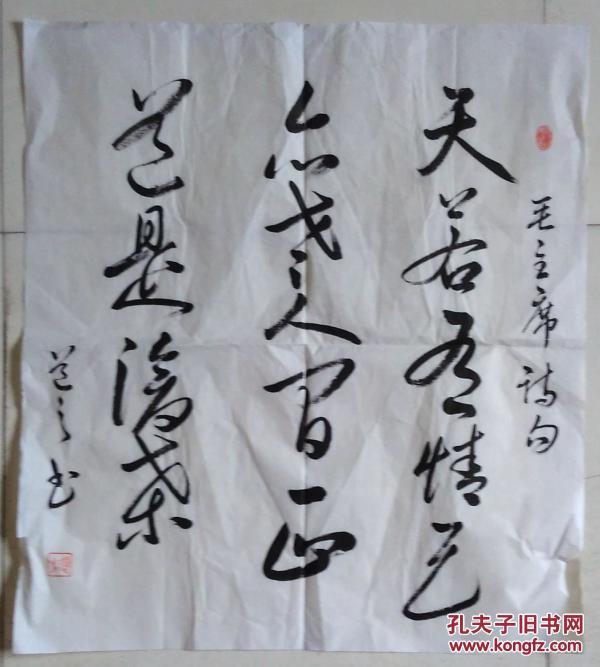 毛主席诗句
天若有情天
亦老人间正
道是沧桑
道书
孔夫子旧书网
www.kongfz.com